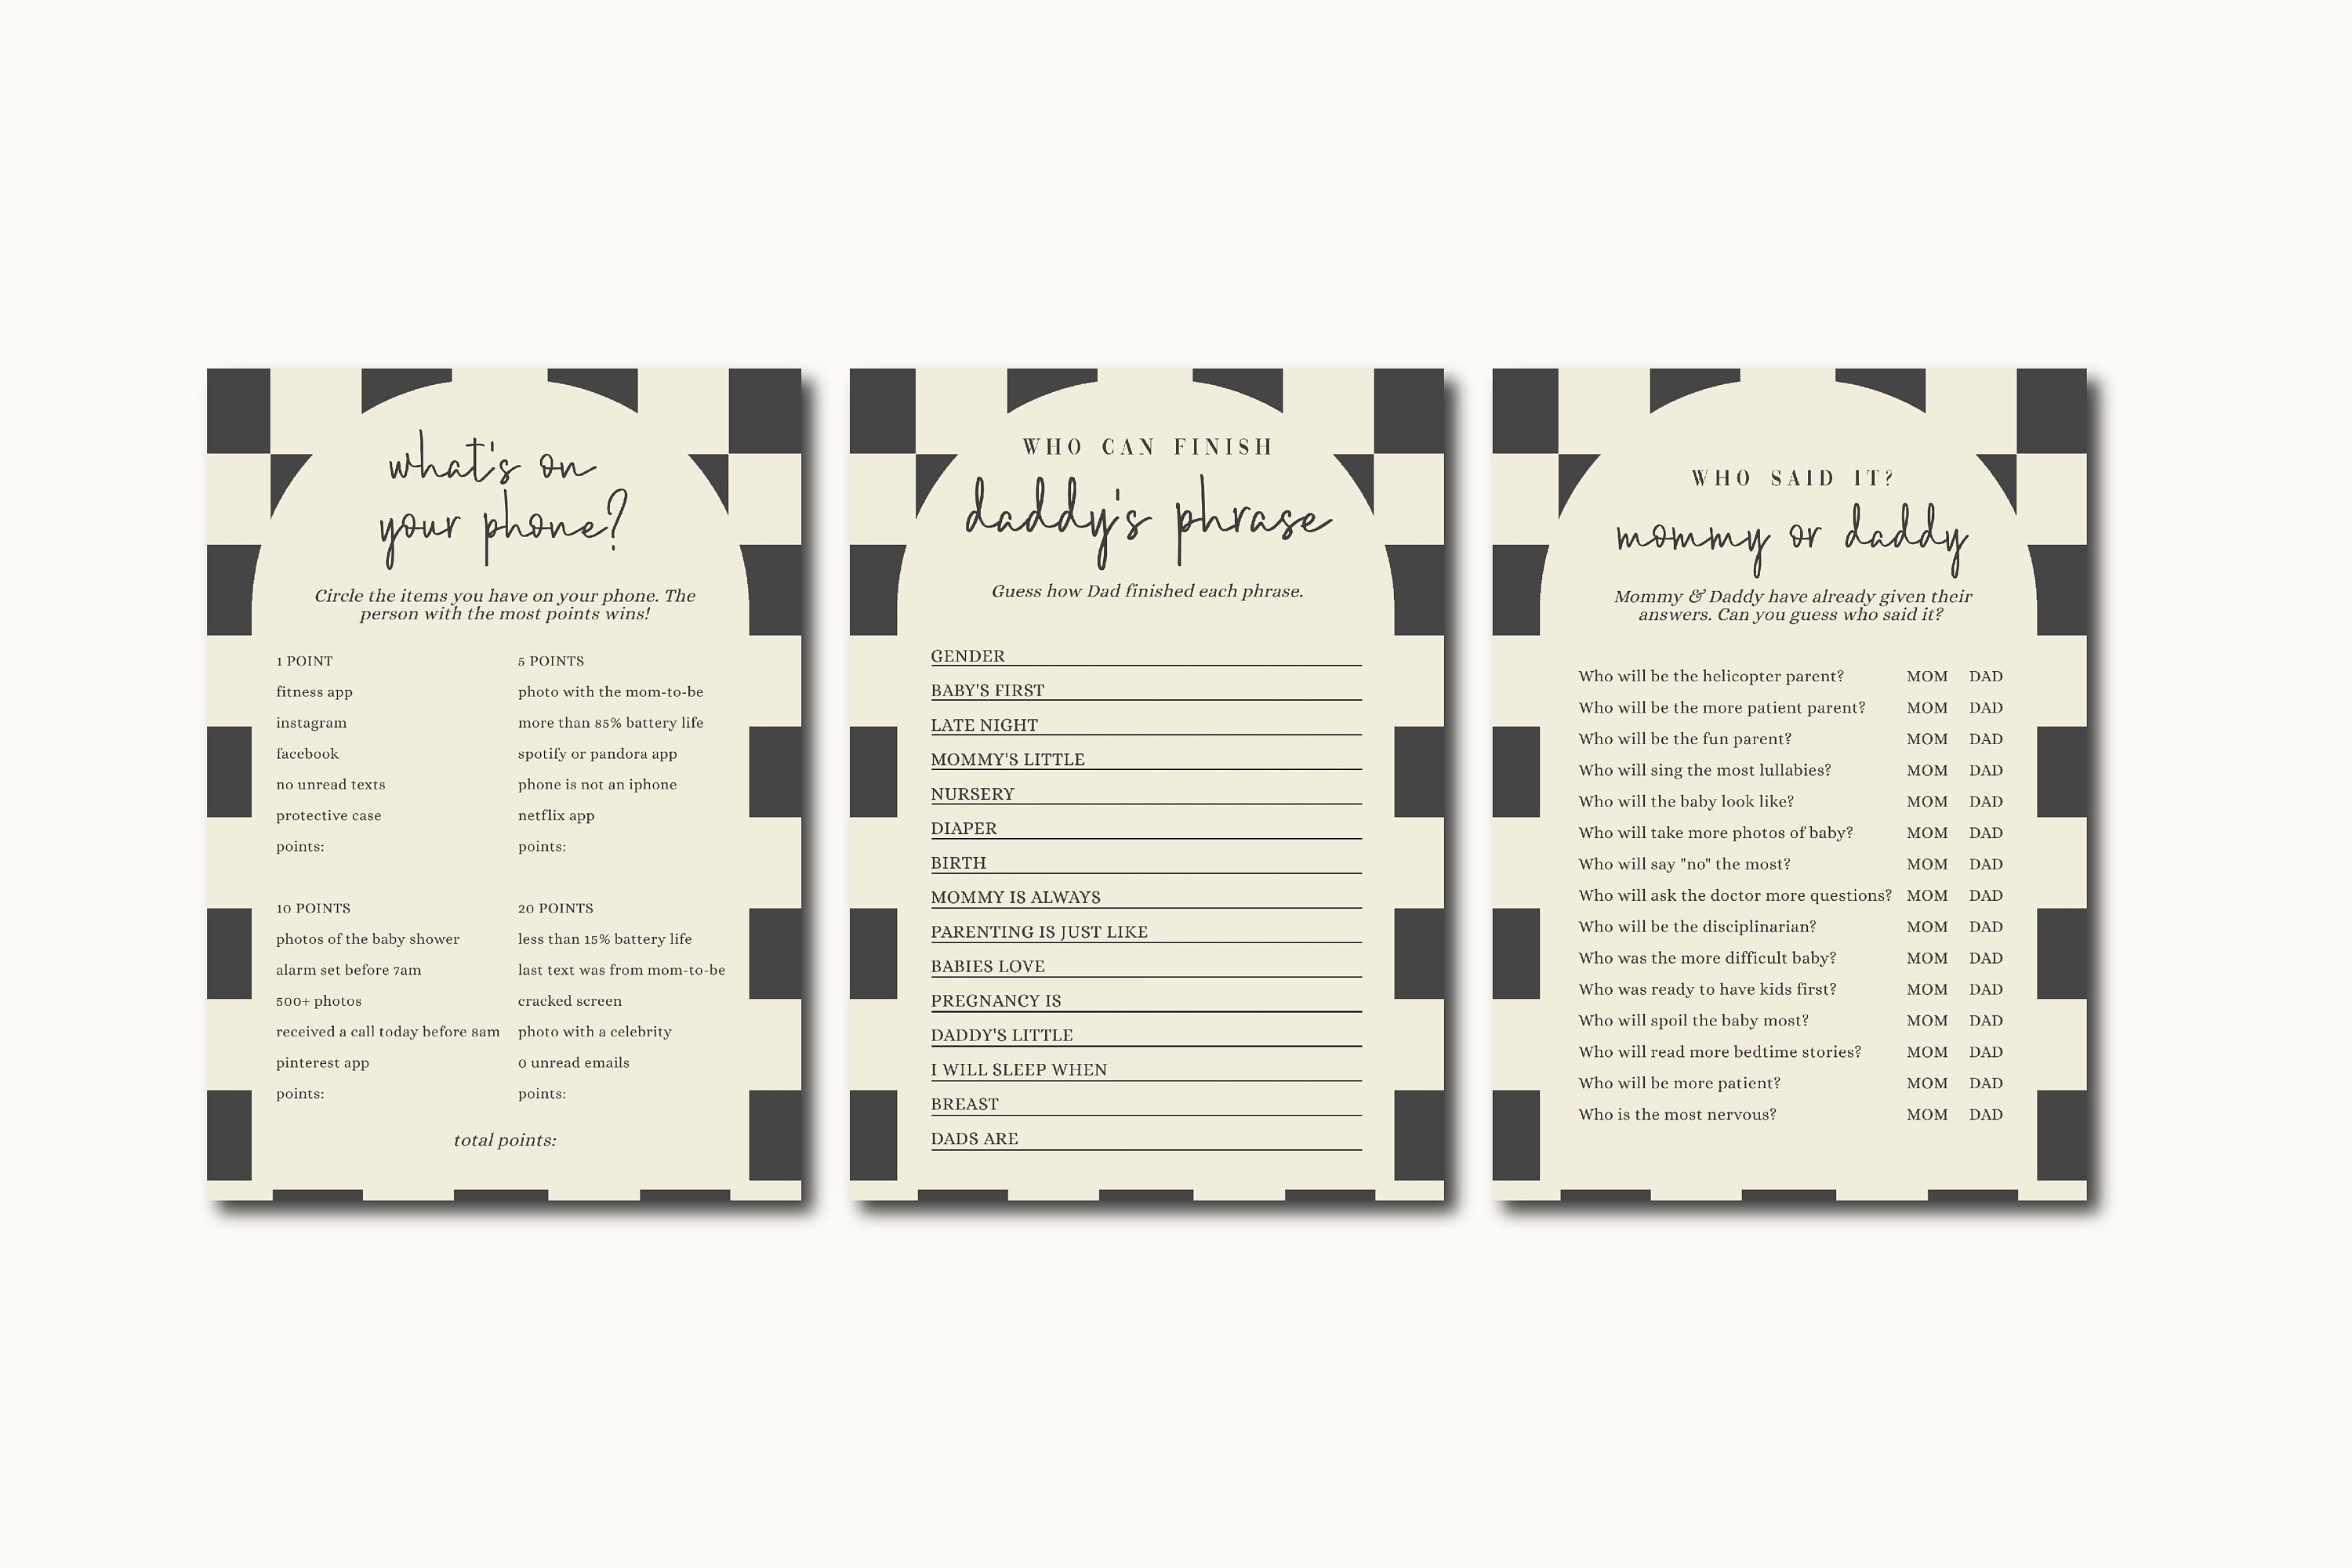 what's on
your phone?
Circle the items you have on your phone. The
person with the most points wins!
1 POINT
fitness app
instagram
facebook
no unread texts
protective case
points:
5 POINTS
photo with the mom-to-be
more than 85% battery life
spotify or pandora app
phone is not an iphone
netflix app
points:
10 POINTS
photos of the baby shower
alarm set before 7am
500+ photos
received a call today before 8am
pinterest app
points:
20 POINTS
less than 15% battery life
last text was from mom-to-be
cracked screen
photo with a celebrity
0 unread emails
points:
total points:
WHO CAN FINISH
daddy's phrase
Guess how Dad finished each phrase.
GENDER
BABY'S FIRST
LATE NIGHT
MOMMY'S LITTLE
NURSERY
DIAPER
BIRTH
MOMMY IS ALWAYS
PARENTING IS JUST LIKE
BABIES LOVE
PREGNANCY IS
DADDY'S LITTLE
I WILL SLEEP WHEN
BREAST
DADS ARE
WHO SAID IT?
mommy or daddy
Mommy & Daddy have already given their
answers. Can you guess who said it?
Who will be the helicopter parent? MOM DAD
Who will be the more patient parent? MOM DAD
Who will be the fun parent? MOM DAD
Who will sing the most lullabies? MOM DAD
Who will the baby look like? MOM DAD
Who will take more photos of baby? MOM DAD
Who will say "no" the most? MOM DAD
Who will ask the doctor more questions? MOM DAD
Who will be the disciplinarian? MOM DAD
Who was the more difficult baby? MOM DAD
Who was ready to have kids first? MOM DAD
Who will spoil the baby most? MOM DAD
Who will read more bedtime stories? MOM DAD
Who will be more patient? MOM DAD
Who is the most nervous? MOM DAD